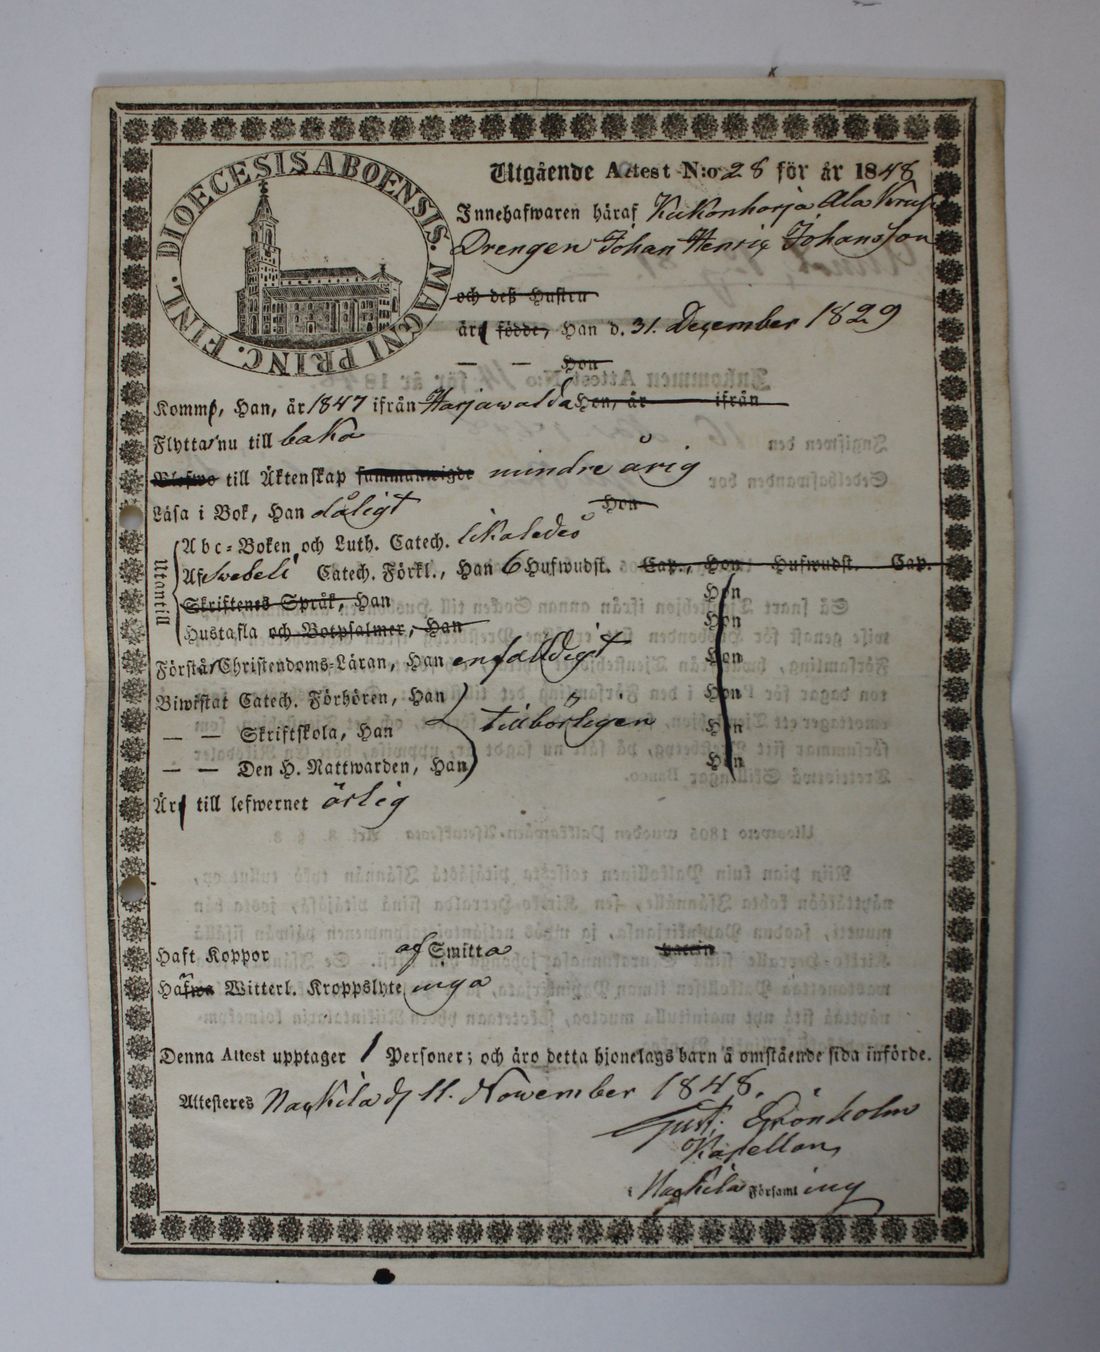 DIOECESIS ABOENSIS. MAGNI PRINC. FINL.
Utgående Attest N:o 28 för år 1848
Innehafwaren häraf Kukonharja Ala
Drengen Johan Henric Johansson
och deß Hustru
äro födde, Han d. 31. December 1829
— — Hon
Komm, Han, år 1847 ifrån Harjawalda Hon, år ifrån
Flytta nu till baka
Blefwo till Äktenskap sammanwigde minderårig
Läsa i Bok, Han dåligt Hon
Utantill
Abc-Boken och Luth. Catech. likaledes
Af Swebeli Catech. Förkl., Han 6 Hufwudst. Cap., Hon Hufwudst. Cap.
Skriftenes Språk, Han Hon
Hustafla och Botpsalmer, Han Hon
Förstår Christendoms-Läran, Han enfaldigt Hon
Biwistat Catech. Förhören, Han Hon
— — Skriftskola, Han tillbörligen Hon
— — Den H. Nattwarden, Han Hon
Är till lefwernet ärlig
Haft Koppor af Smitta
Hafwa Witterl. Kroppslyte inga
Denna Attest upptager 1 Personer; och äro detta hjonelags barn å omstående sida införde.
Attesteres Nackila d. 11. November 1848.
Gust. Grönholm
Kapellan
i Nackila Församling